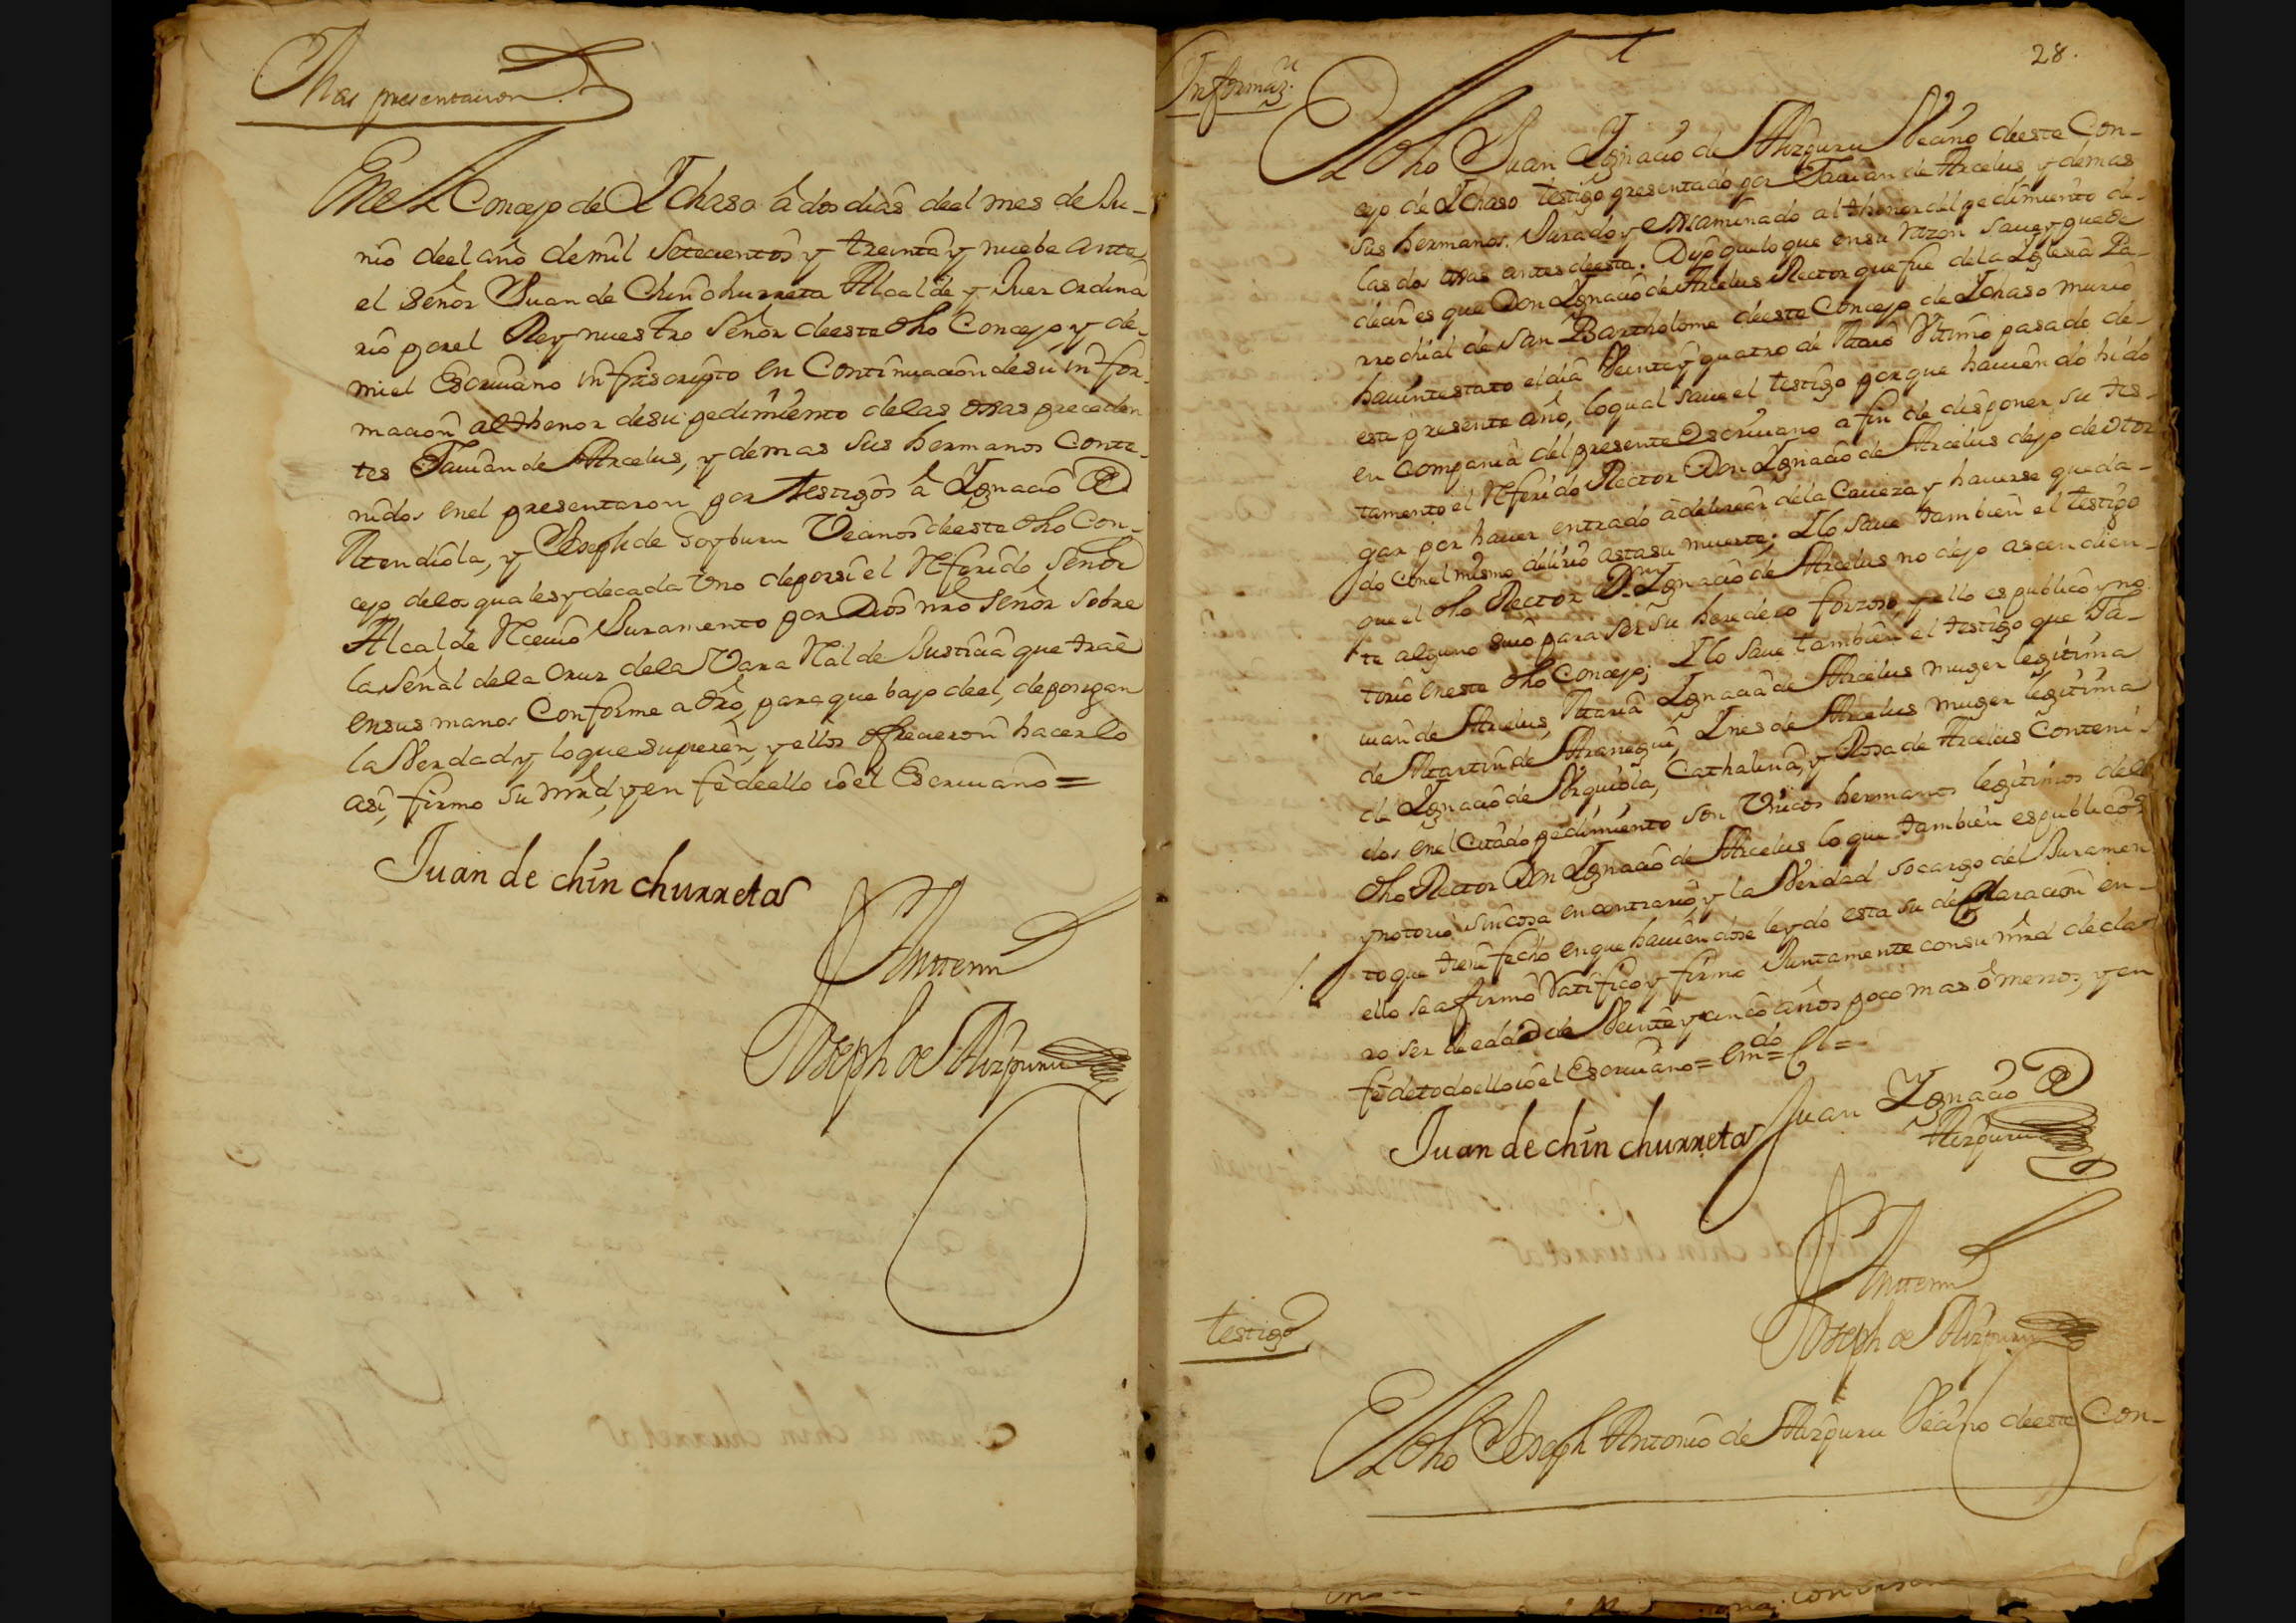 Mas presentacion.
En el Concejo de Ychaso â dos dias deel mes de Ju-
nio deel año demil Setecientos y treinta y nuebe ante
el Señor Juan de Chinchurreta Alcalde y Juez ordina
rio por el Rey nuestro Señor deeste dho Concejo, y de-
mi el Escriuano infrascripto en Continuacion desu infor-
macion al thenor desu pedimiento delas ojas preceden
tes Jauian de Arcelus, y demas sus hermanos Conte-
nidos enel presentaron por testigos â Ygnacio de
Atendiola, y Joseph de Goyburu Vecinos deeste dho Con-
cejo delos quales y decada Uno deporsi el Referido Señor
Alcalde Receuio Juramento por Dios nro Señor sobre
la Señal dela Cruz dela Vara Rl de Justicia que trae
ensus manos Conforme a dro, para que bajo deel, depongan
la Verdad y loque supieren, y ellos ofrecieron hacerlo
asi, firmo su mrd, y en feè deello io el Escriuano =
Juan de chin churreta
Anttemi
Joseph de Aizpuru
28.
Informaz.n
El dho Juan Ygnacio de Aizpuru Vecino deeste Con-
cejo de Ychaso testigo presentado por Jauian de Arcelus y demas
sus hermanos. Jurado y examinado al thenor del pedimiento de-
las dos ojas antes deesta. Dijo que lo que en su razon saue y puede
decir es que Don Ygnacio de Arcelus Rector que fue dela Yglesia Pa-
rrochial de San Bartholome deeste Concejo de Ychaso murio
hauintestato el dia Veinte y quatro de Maio Vltimo pasado de-
este presente año, loqual saue el testigo porque hauiendo hido
en Compania del presente Escriuano a fin de disponer su tes-
tamento el Referido Rector Don Ygnacio de Arcelus dejo de otor
gar por hauer entrado à delirear dela Caueza y hauerse queda-
do con el mismo delirio asta su muerte; Ylo saue tambien el testigo
que el dho Rector D.n Ygnacio de Arcelus no dejo ascendien-
te alguno suio para ser su heredero forzoso, y ello es publico y no
torio en este dho Concejo; Ylo saue tambien el testigo que Ja-
uian de Arcelus, Maria Ygnacia de Arcelus muger legitima
de Martin de Aranegui, Ynes de Arcelus muger legitima
de Ygnacio de Urquiola, Cathalina, y Rosa de Arcelus Conteni-
dos enel Citado pedimiento son Unicos hermanos legitimos del
dho Rector Don Ygnacio de Arcelus lo que tambien es publico
y notorio sin cosa en contrario, y la Verdad socargo del Juramen
to que tiene fecho en que hauiendose leydo esta su declaracion en-
ello se afirmo Ratifico y firmo Juntamente con su mrd decla
ro ser de edad de Veinte y cinco años poco mas ô menos, y en
feè detodo ello io el Escriuano = Em.do = Cl =
Juan de chin churreta Juan Ygnacio de
Aizpuru
Anttemi
Joseph de Aizpuru
testigo
El dho Joseph Antonio de Aizpuru Vecino deeste Con-